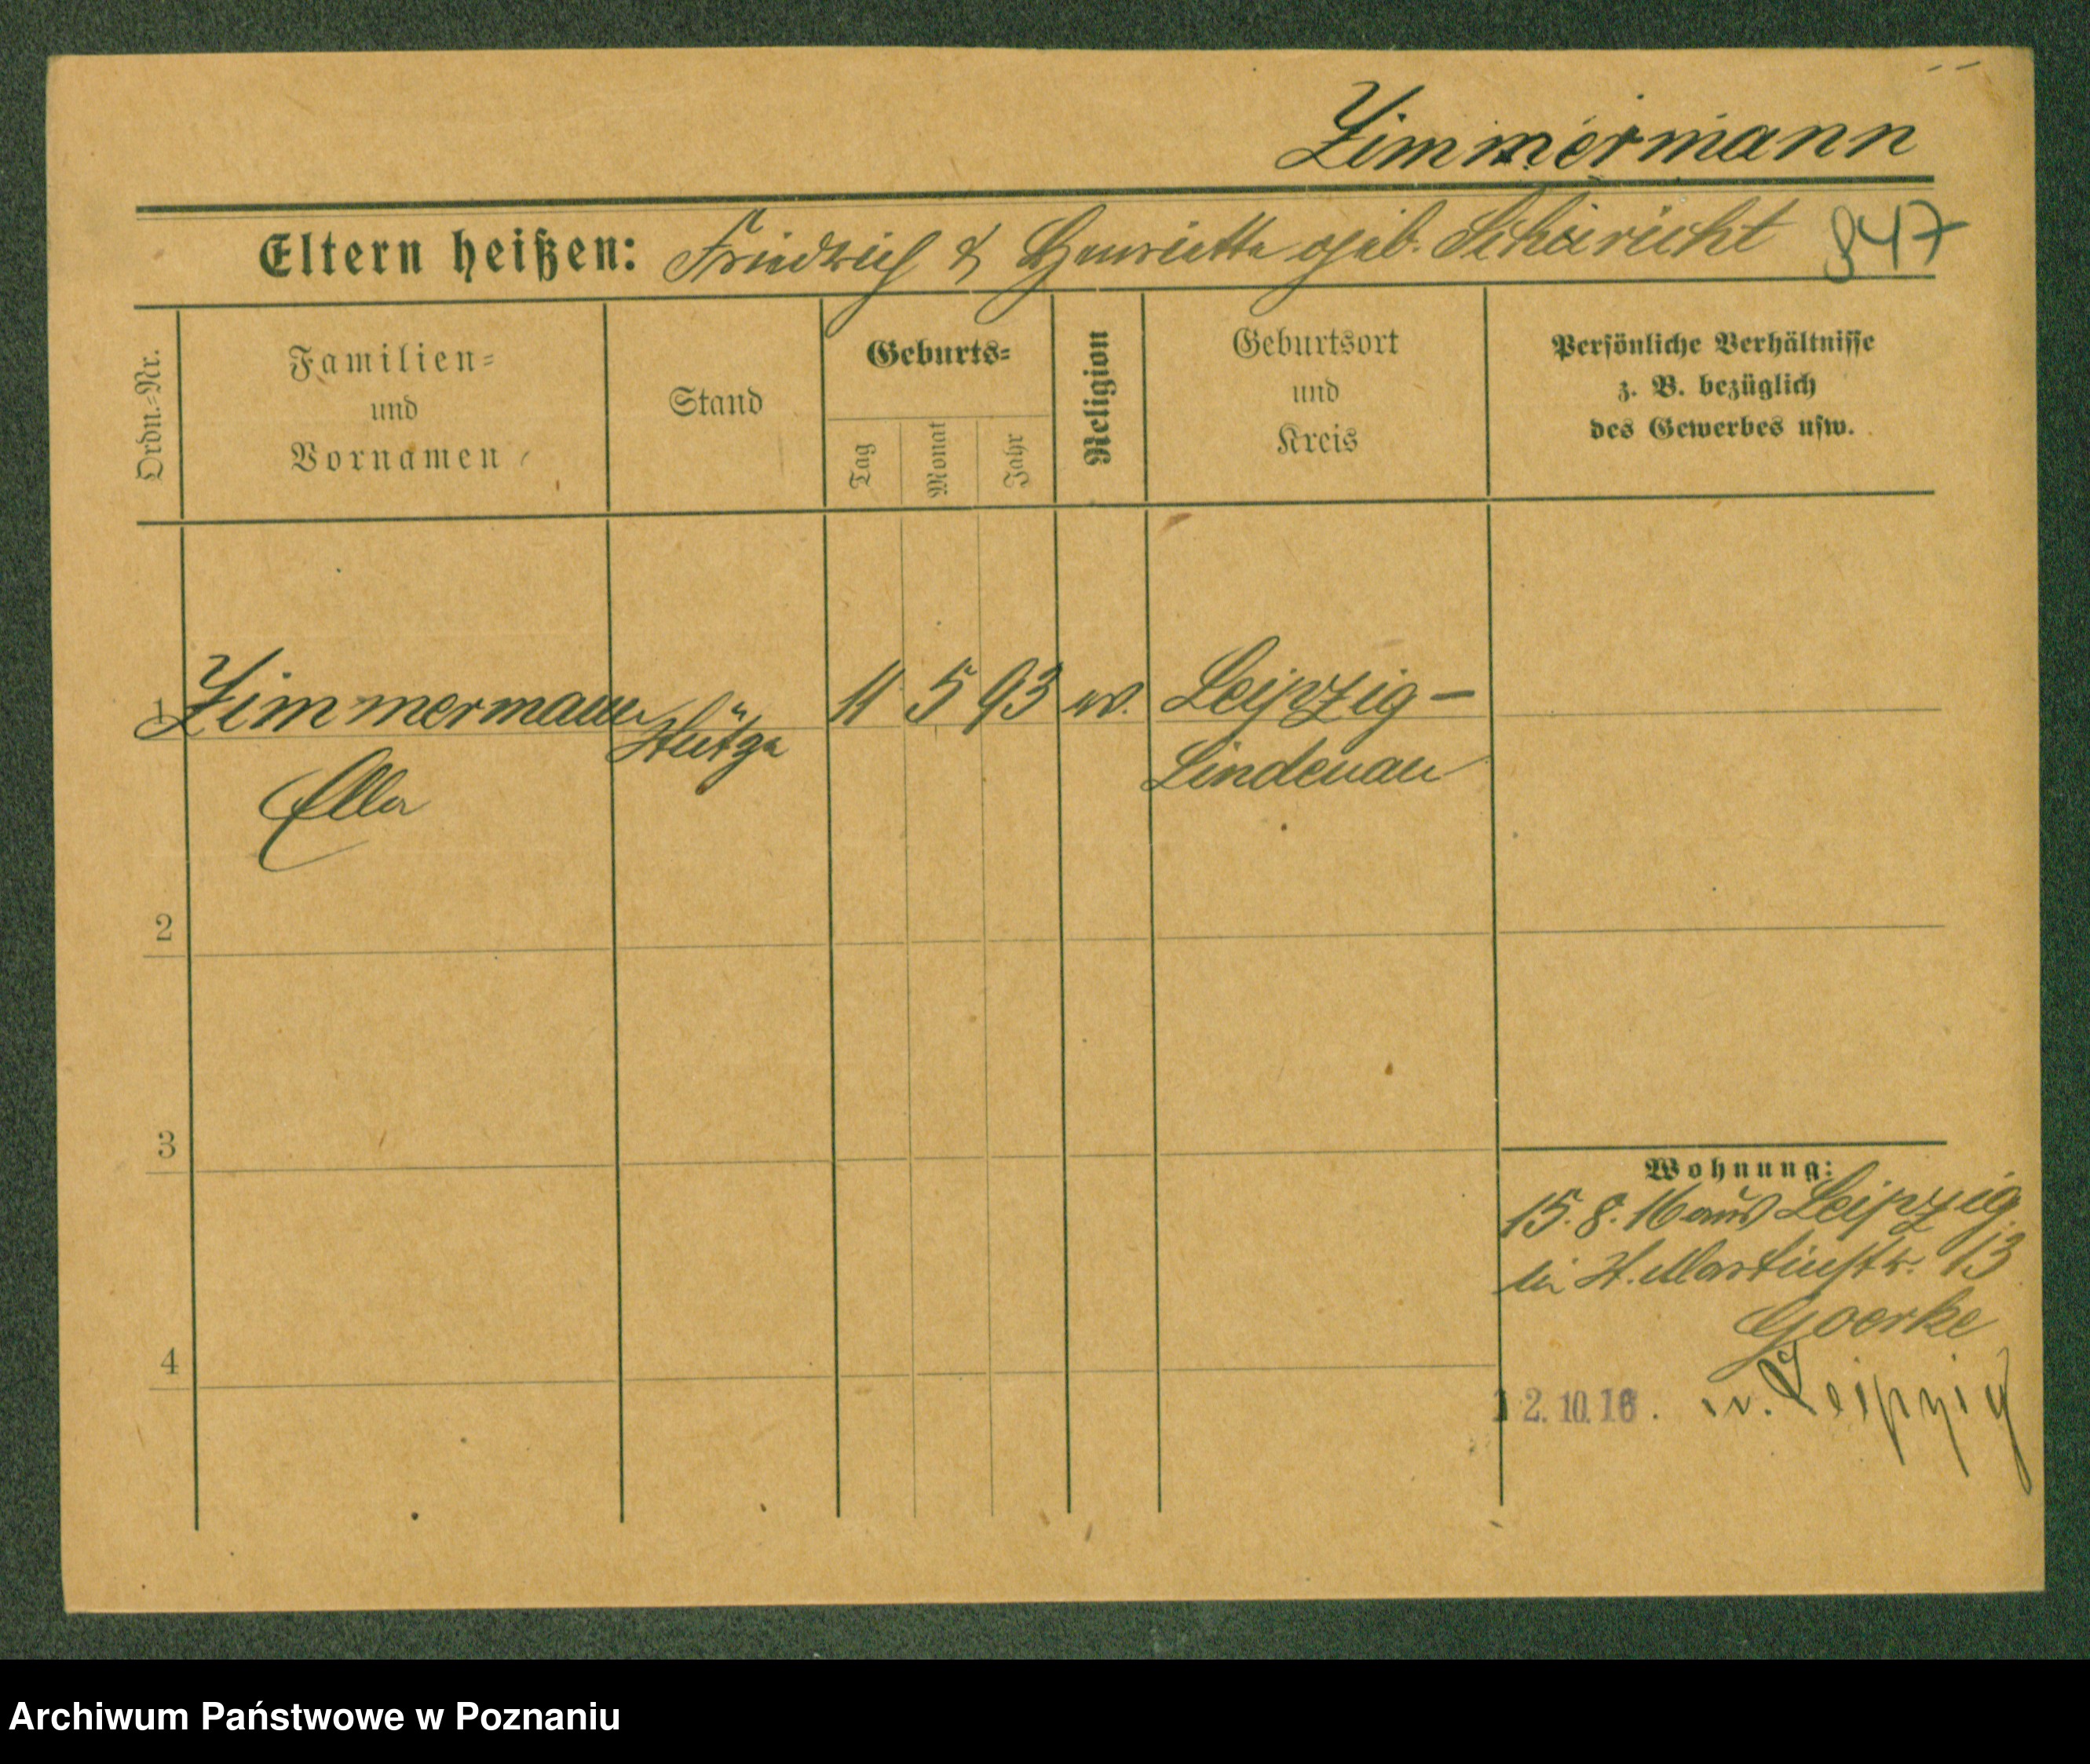 Zimmermann
Eltern heißen: Friedrich & Henriette geb. Scheiricht 847
Ordn.-Nr.
Familien-
und
Vornamen
Stand
Geburts-
Tag
Monat
Jahr
Religion
Geburtsort
und
Kreis
Persönliche Verhältnisse
z. B. bezüglich
des Gewerbes usw.
1 Zimmermann 11 5 93 Leipzig-
Lindenau
Ella
2
3
Wohnung:
15. 8. 16 aus Leipzig
St. Martinstr. 13
Goerke
4
12.10.16. n. Leipzig
Archiwum Państwowe w Poznaniu